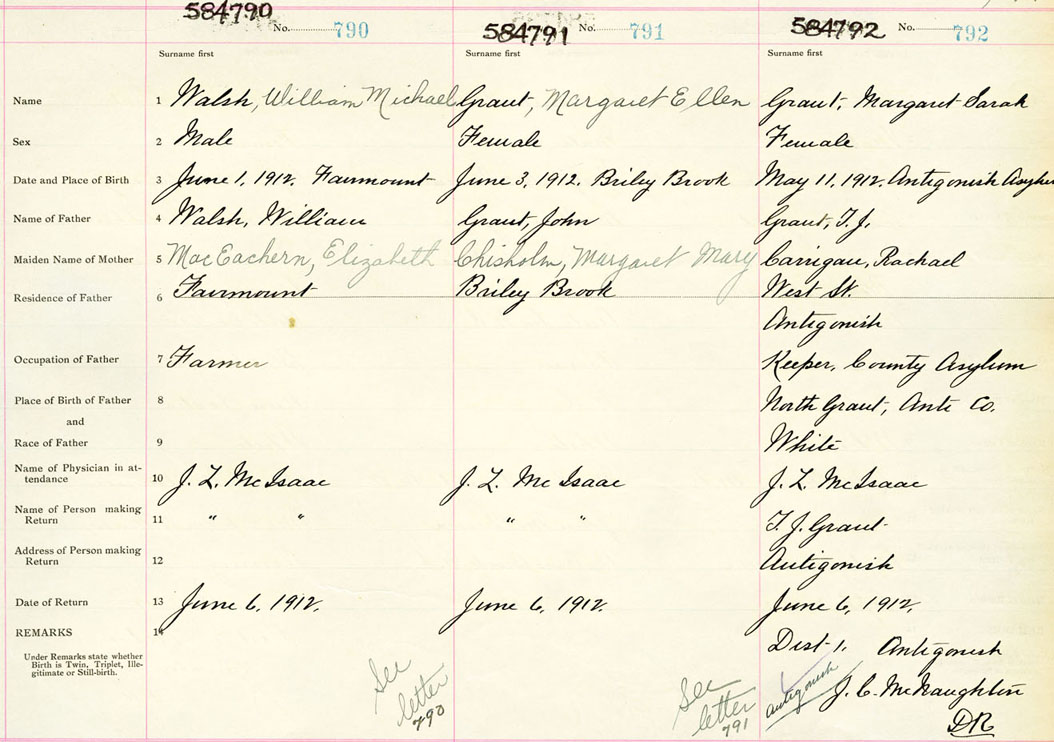 584790 No. 790 584791 No. 791 584792 No. 792
Surname first Surname first Surname first
Name 1 Walsh, William Michael Grant, Margaret Ellen Grant, Margaret Sarah
Sex 2 Male Female Female
Date and Place of Birth 3 June 1, 1912. Fairmount June 3, 1912. Briley Brook May 11, 1912. Antigonish Asylum
Name of Father 4 Walsh, William Grant, John Grant, T. J.
Maiden Name of Mother 5 MacEachern, Elizabeth Chisholm, Margaret Mary Carrigan, Rachael
Residence of Father 6 Fairmount Briley Brook West St.
Antigonish
Occupation of Father 7 Farmer Keeper, County Asylum
Place of Birth of Father 8 North Grant, Anti Co.
and
Race of Father 9 White
Name of Physician in at-
tendance 10 J. L. McIsaac J. L. McIsaac J. L. McIsaac
Name of Person making
Return 11 " " " " T. J. Grant
Address of Person making
Return 12 Antigonish
Date of Return 13 June 6, 1912. June 6, 1912. June 6, 1912.
REMARKS 14
Under Remarks state whether
Birth is Twin, Triplet, Ille-
gitimate or Still-birth.
See
letter
790
See
letter
791
Dist 1. Antigonish
Antigonish J. C. McNaughton
DR